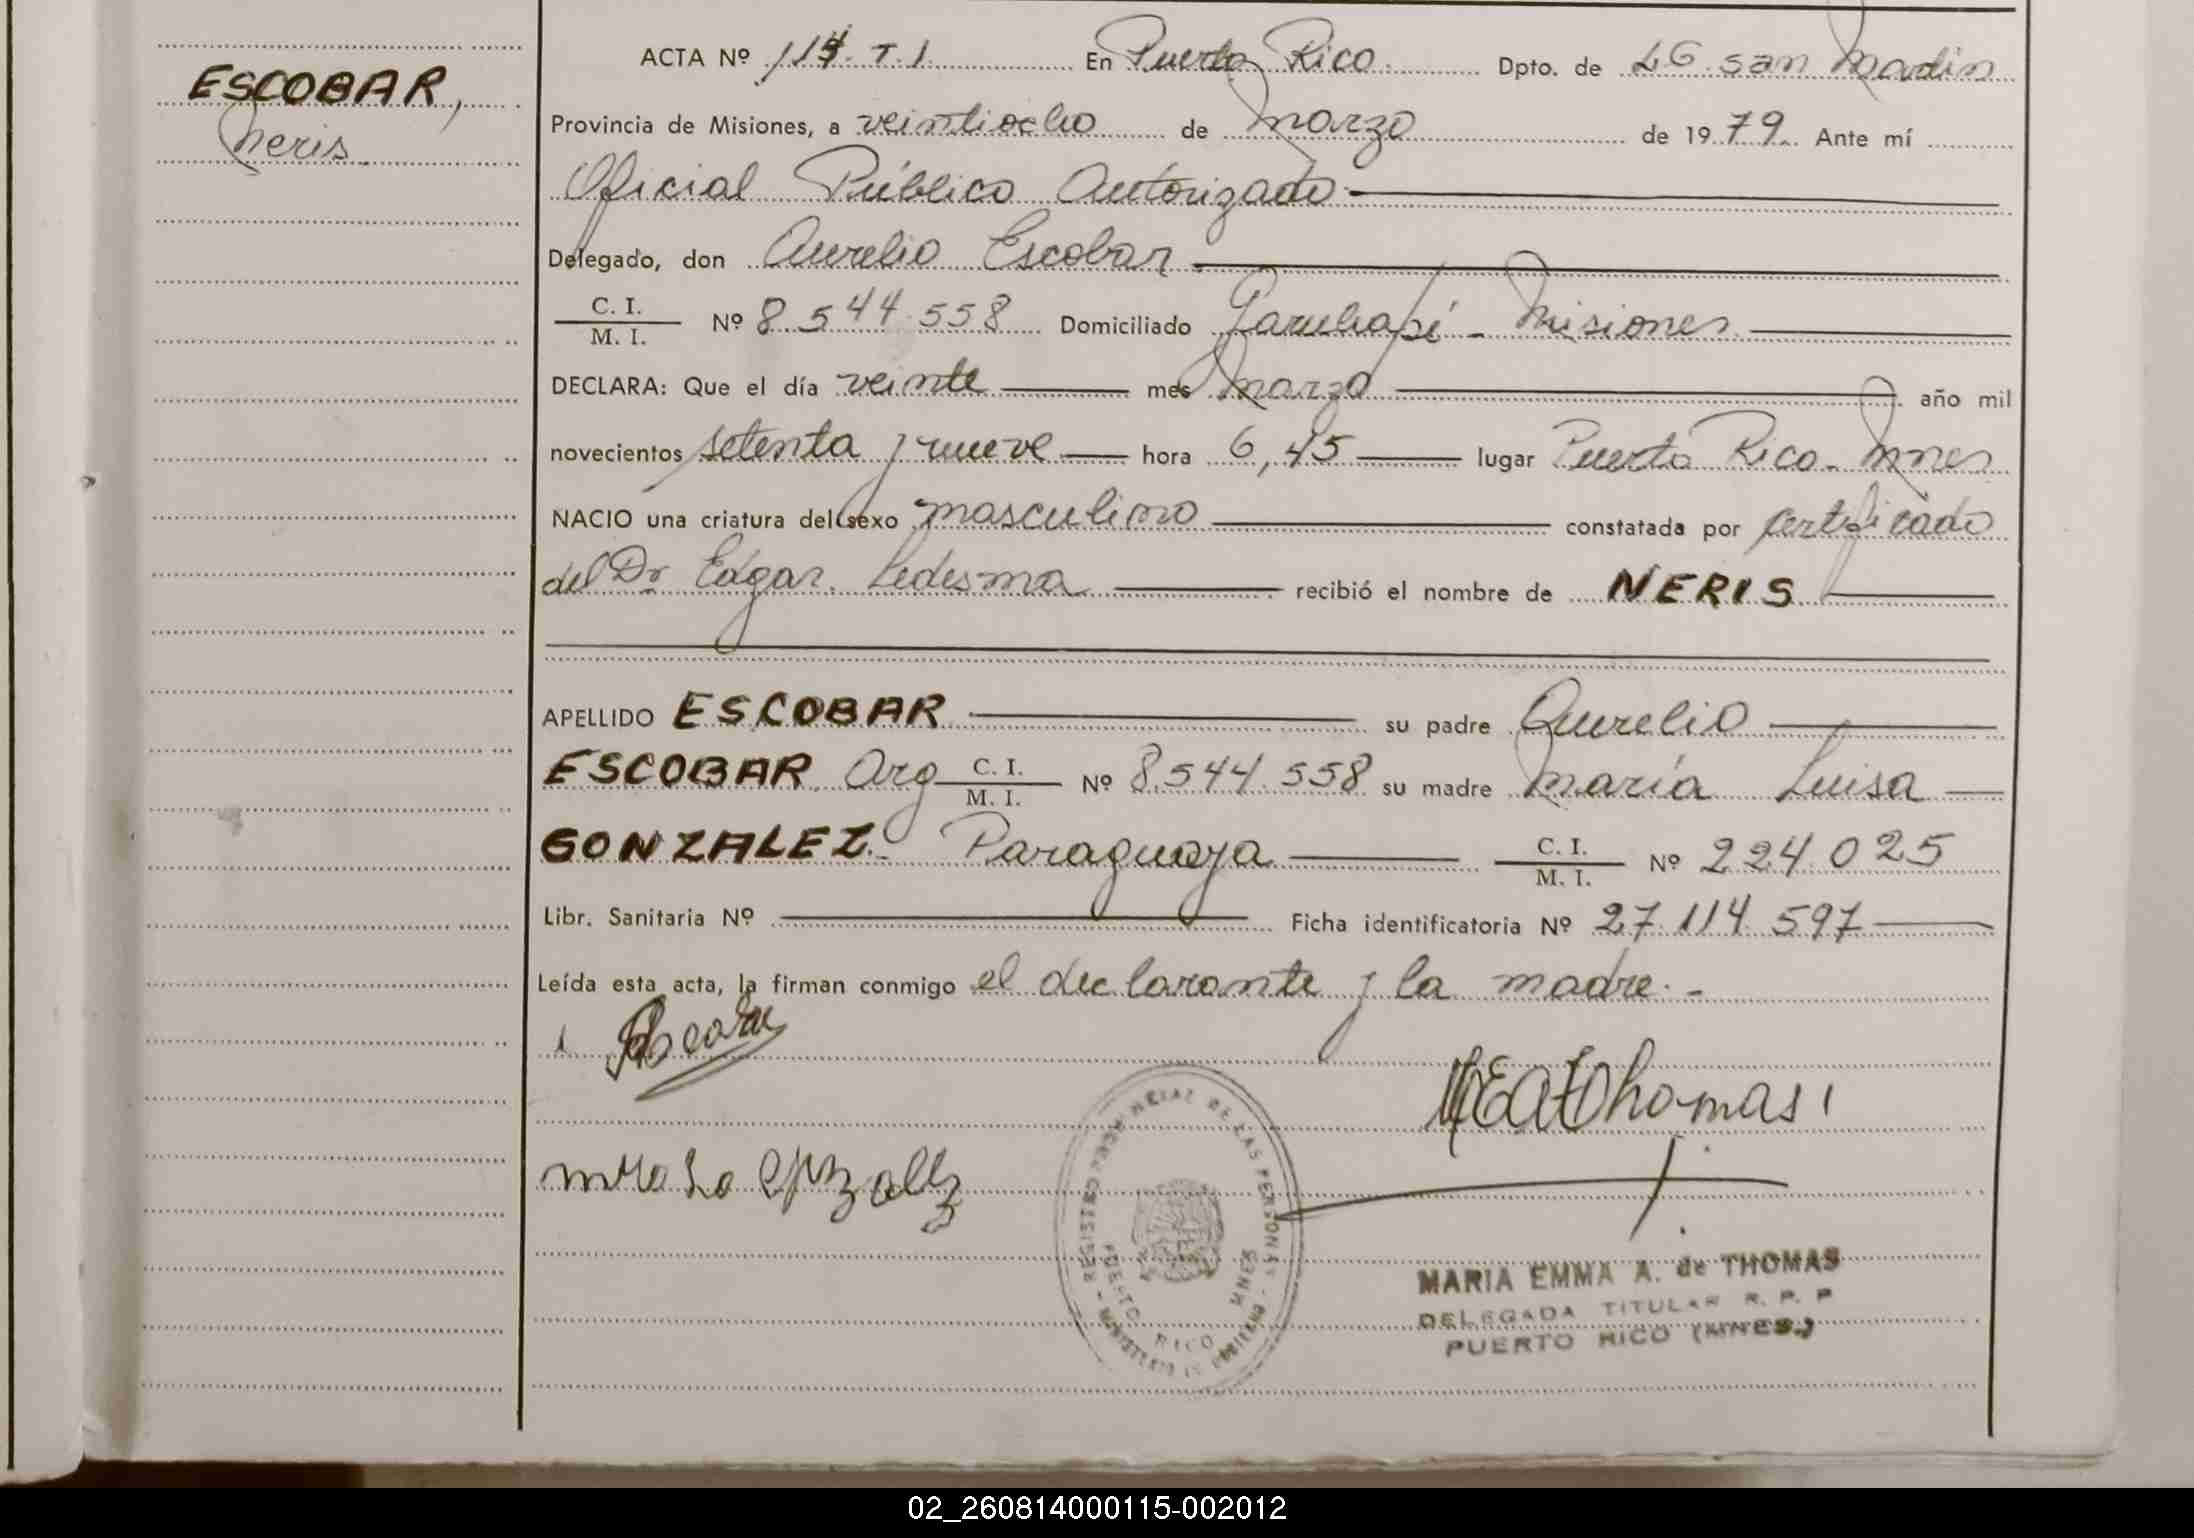 ESCOBAR,
Neris.
ACTA Nº 114. T. I. En Puerto Rico. Dpto. de LG. San Martin
Provincia de Misiones, a veintiocho de marzo de 1979. Ante mí
Oficial Público Autorizado
Delegado, don Aurelio Escobar
C. I.
M. I. Nº 8.544.558 Domiciliado Garuhapé - Misiones
DECLARA: Que el día veinte mes marzo año mil
novecientos setenta y nueve hora 6,45 lugar Puerto Rico - Mnes
NACIO una criatura del sexo masculino constatada por certificado
del Dr Edgar. Ledesma recibió el nombre de NERIS
APELLIDO ESCOBAR su padre Aurelio
ESCOBAR. Arg C. I.
M. I. Nº 8.544.558 su madre María Luisa
GONZALEZ - Paraguaya C. I.
M. I. Nº 224.025
Libr. Sanitaria Nº Ficha identificatoria Nº 27.114.597
Leída esta acta, la firman conmigo el declarante y la madre. -
MEAThomas
REGISTRO PROVINCIAL DE LAS PERSONAS - MINISTERIO DE GOBIERNO -
PUERTO RICO MNES
MARIA EMMA A. de THOMAS
DELEGADA TITULAR R. P. P
PUERTO RICO (MNES.)
02_260814000115-002012